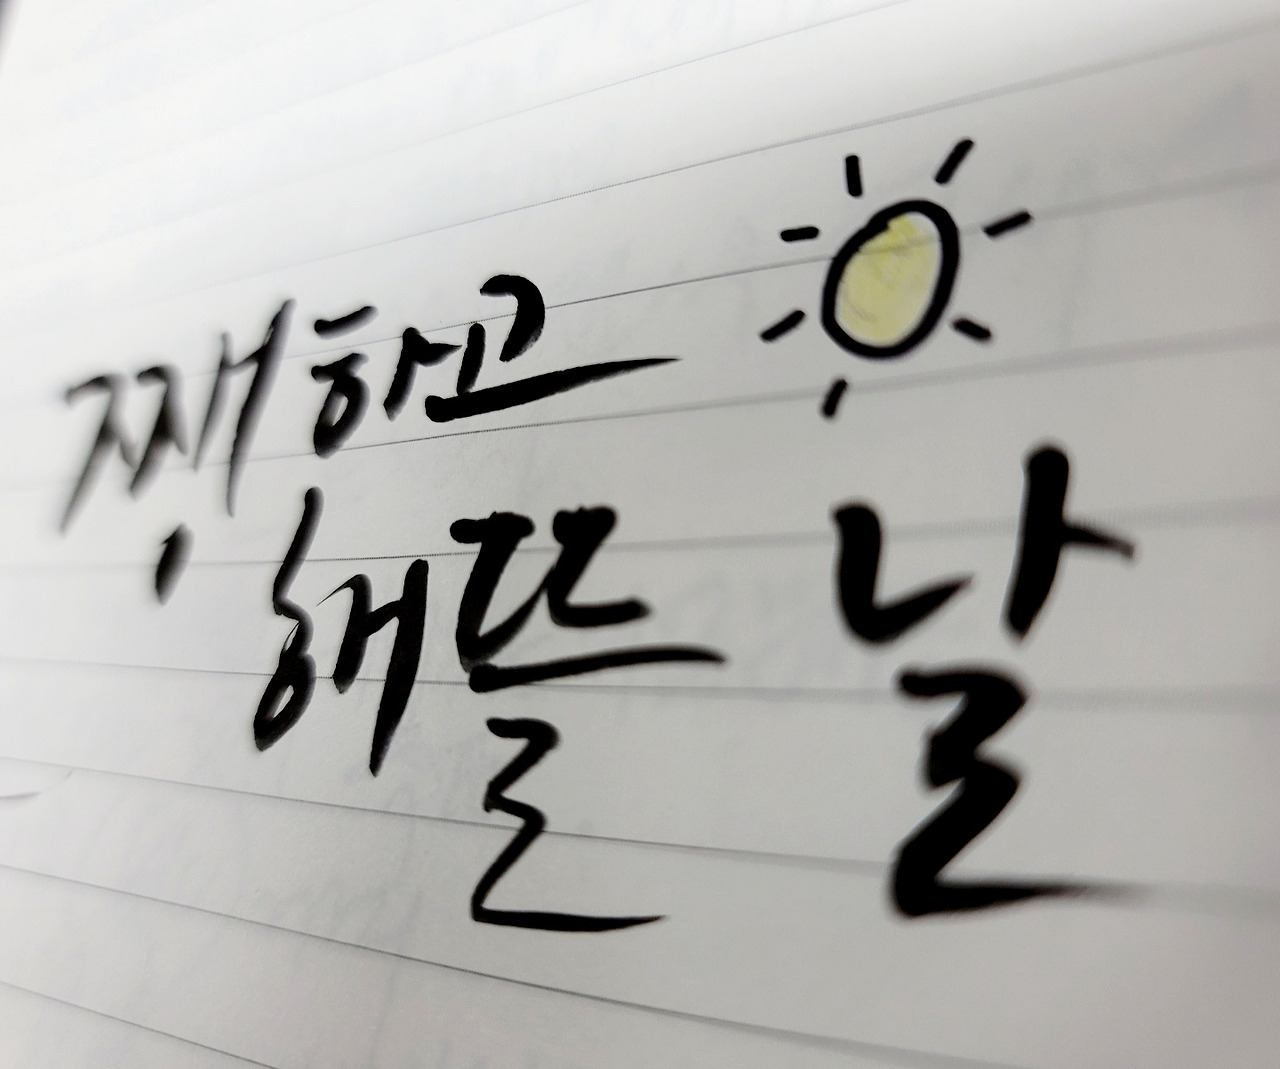 쨍하고
해뜰 날